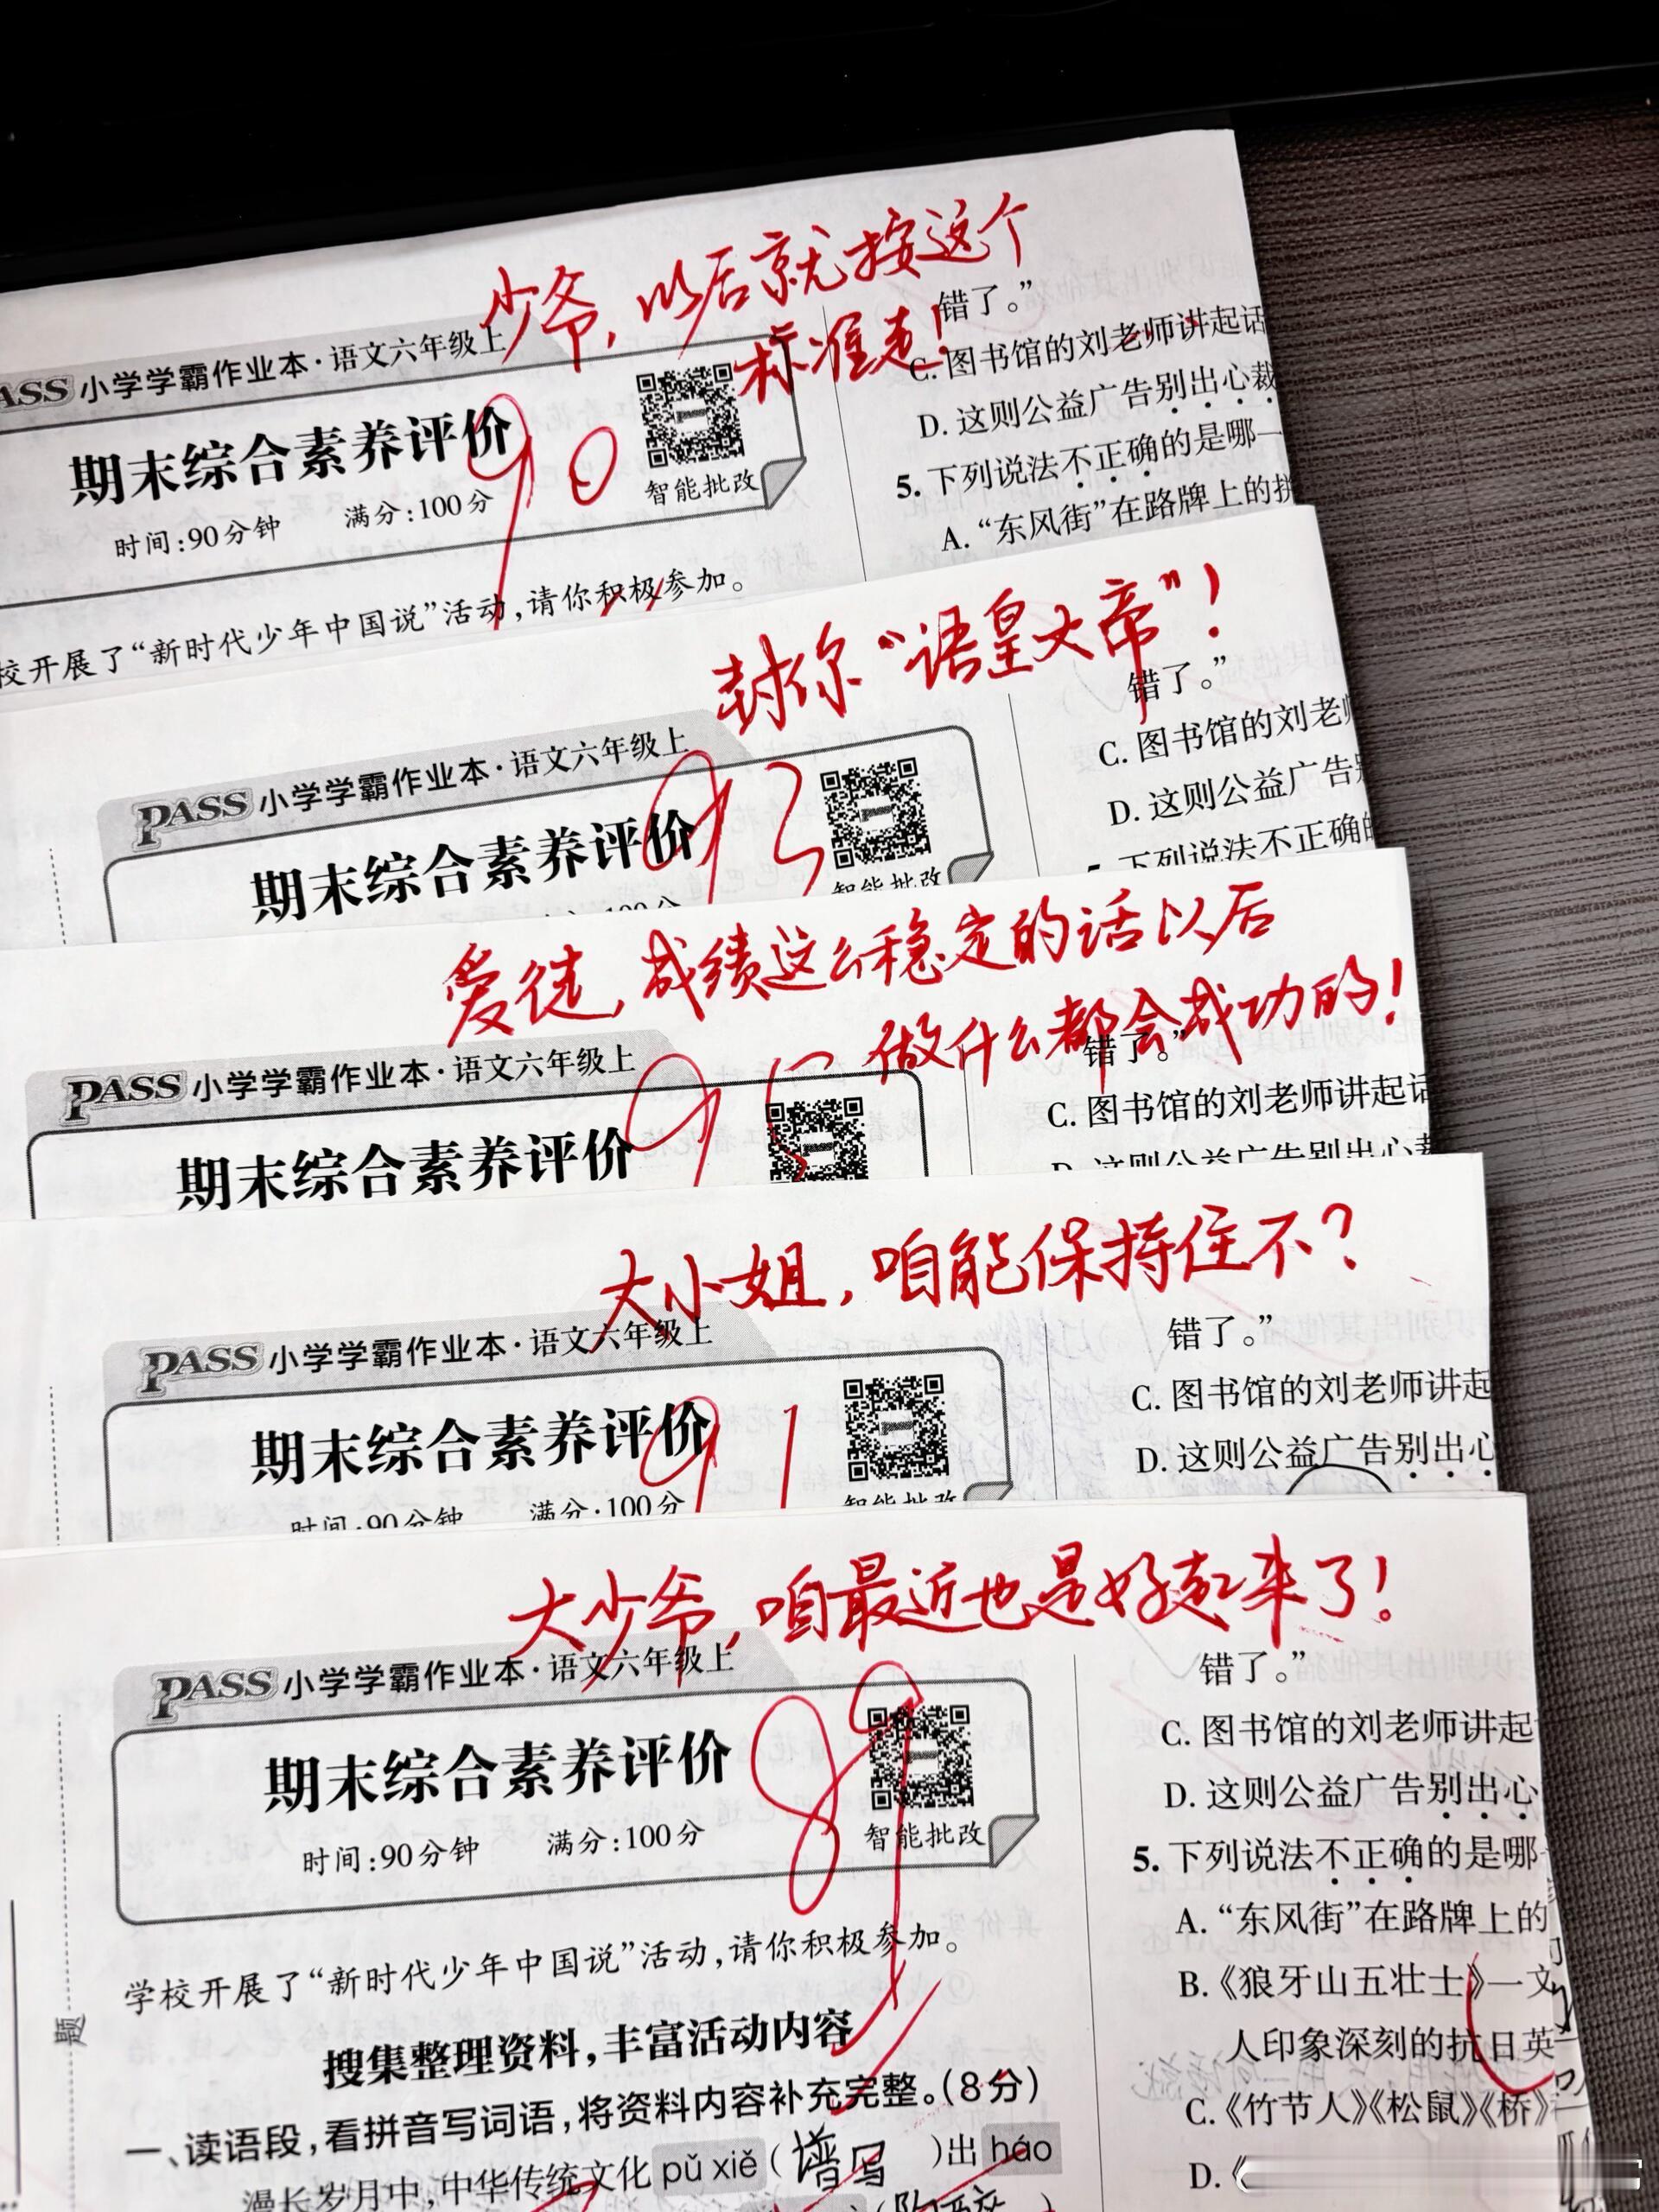 少爷，以后就按这个
标准走！
PASS 小学学霸作业本·语文六年级上
期末综合素养评价
90
时间:90分钟 满分:100分
智能批改
校开展了“新时代少年中国说”活动,请你积极参加。
错了。”
C. 图书馆的刘老师讲起话
D. 这则公益广告别出心裁
5. 下列说法不正确的是哪一
A. “东风街”在路牌上的拼
封你“语皇大帝”！
PASS 小学学霸作业本·语文六年级上
期末综合素养评价
93
100分
智能批改
错了。”
C. 图书馆的刘老师
D. 这则公益广告别
5. 下列说法不正确的
爱徒，成绩这么稳定的话以后
做什么都会成功的！
PASS 小学学霸作业本·语文六年级上
期末综合素养评价
95
错了。”
C. 图书馆的刘老师讲起话
D. 这则公益广告别出心裁
大小姐，咱能保持住不？
PASS 小学学霸作业本·语文六年级上
期末综合素养评价
91
时间:90分钟 满分:100分
智能批改
错了。”
C. 图书馆的刘老师讲起
D. 这则公益广告别出心
大少爷，咱最近也是好起来了！
PASS 小学学霸作业本·语文六年级上
期末综合素养评价
89
时间:90分钟 满分:100分
智能批改
学校开展了“新时代少年中国说”活动,请你积极参加。
搜集整理资料,丰富活动内容
一、读语段,看拼音写词语,将资料内容补充完整。(8分)
漫长岁月中,中华传统文化 pǔ xiě ( 谱写 )出 háo
题
错了。”
C. 图书馆的刘老师讲起
D. 这则公益广告别出心
5. 下列说法不正确的是哪
A. “东风街”在路牌上的
B.《狼牙山五壮士》一文
人印象深刻的抗日英
C.《竹节人》《松鼠》《桥》
D.《